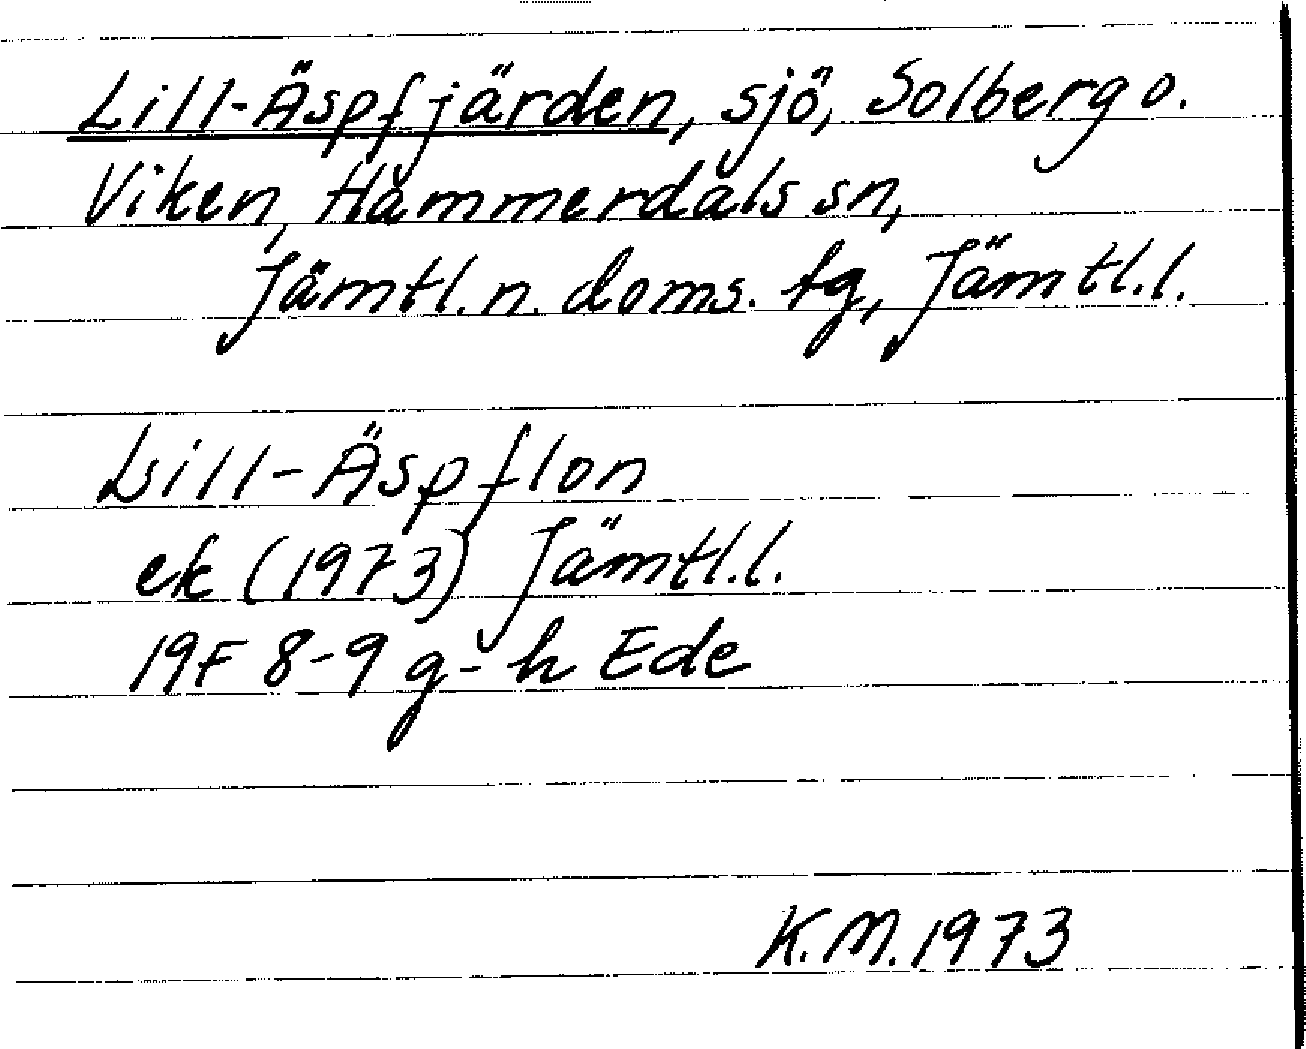 Lill-Äspfjärden, sjö, Solberg o.
Viken, Hammerdals sn,
Jämtl. n. doms. tg, Jämtl.l.
Lill-Äspflon
ek (1973) Jämtl.l.
19F 8-9 g-h Ede
K.M. 1973